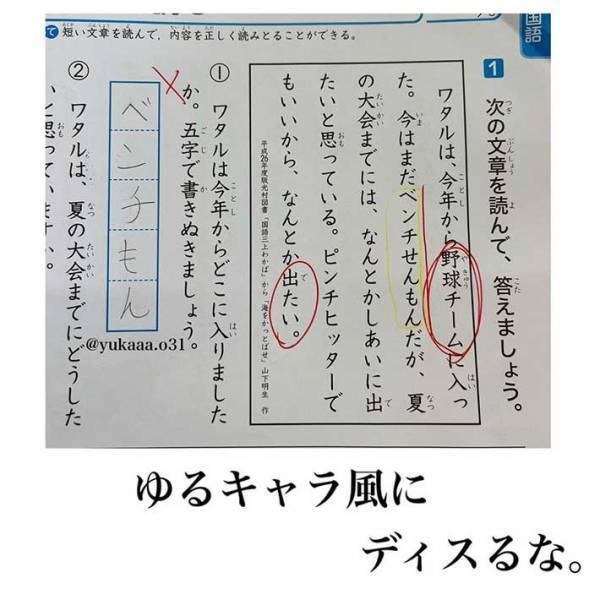 て 短い文章を読んで、内容を正しく読みとることができる。
国語
1 次の文章を読んで、答えましょう。
ワタルは、今年から野球チームに入っ
た。今はまだベンチせんもんだが、夏
の大会までには、なんとかしあいに出
たいと思っている。ピンチヒッターで
もいいから、なんとか出たい。
平成26年度版光村図書「国語三上わかば」から「海をかっとばせ」山下明生 作
① ワタルは今年からどこに入りました
か。五字で書きぬきましょう。
ベンチもん
② ワタルは、夏の大会までにどうした
いと思っていますか。
@yukaaa.o31
ゆるキャラ風に
ディスるな。